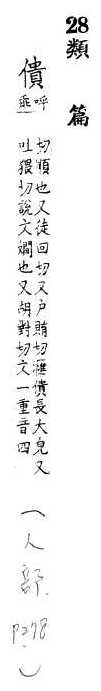 28類篇
僓
呼乖
切順也又徒回切又戶賄切㾯僓長大皃又
吐猥切說文嫺也又胡對切文一重音四
(人部. P278)